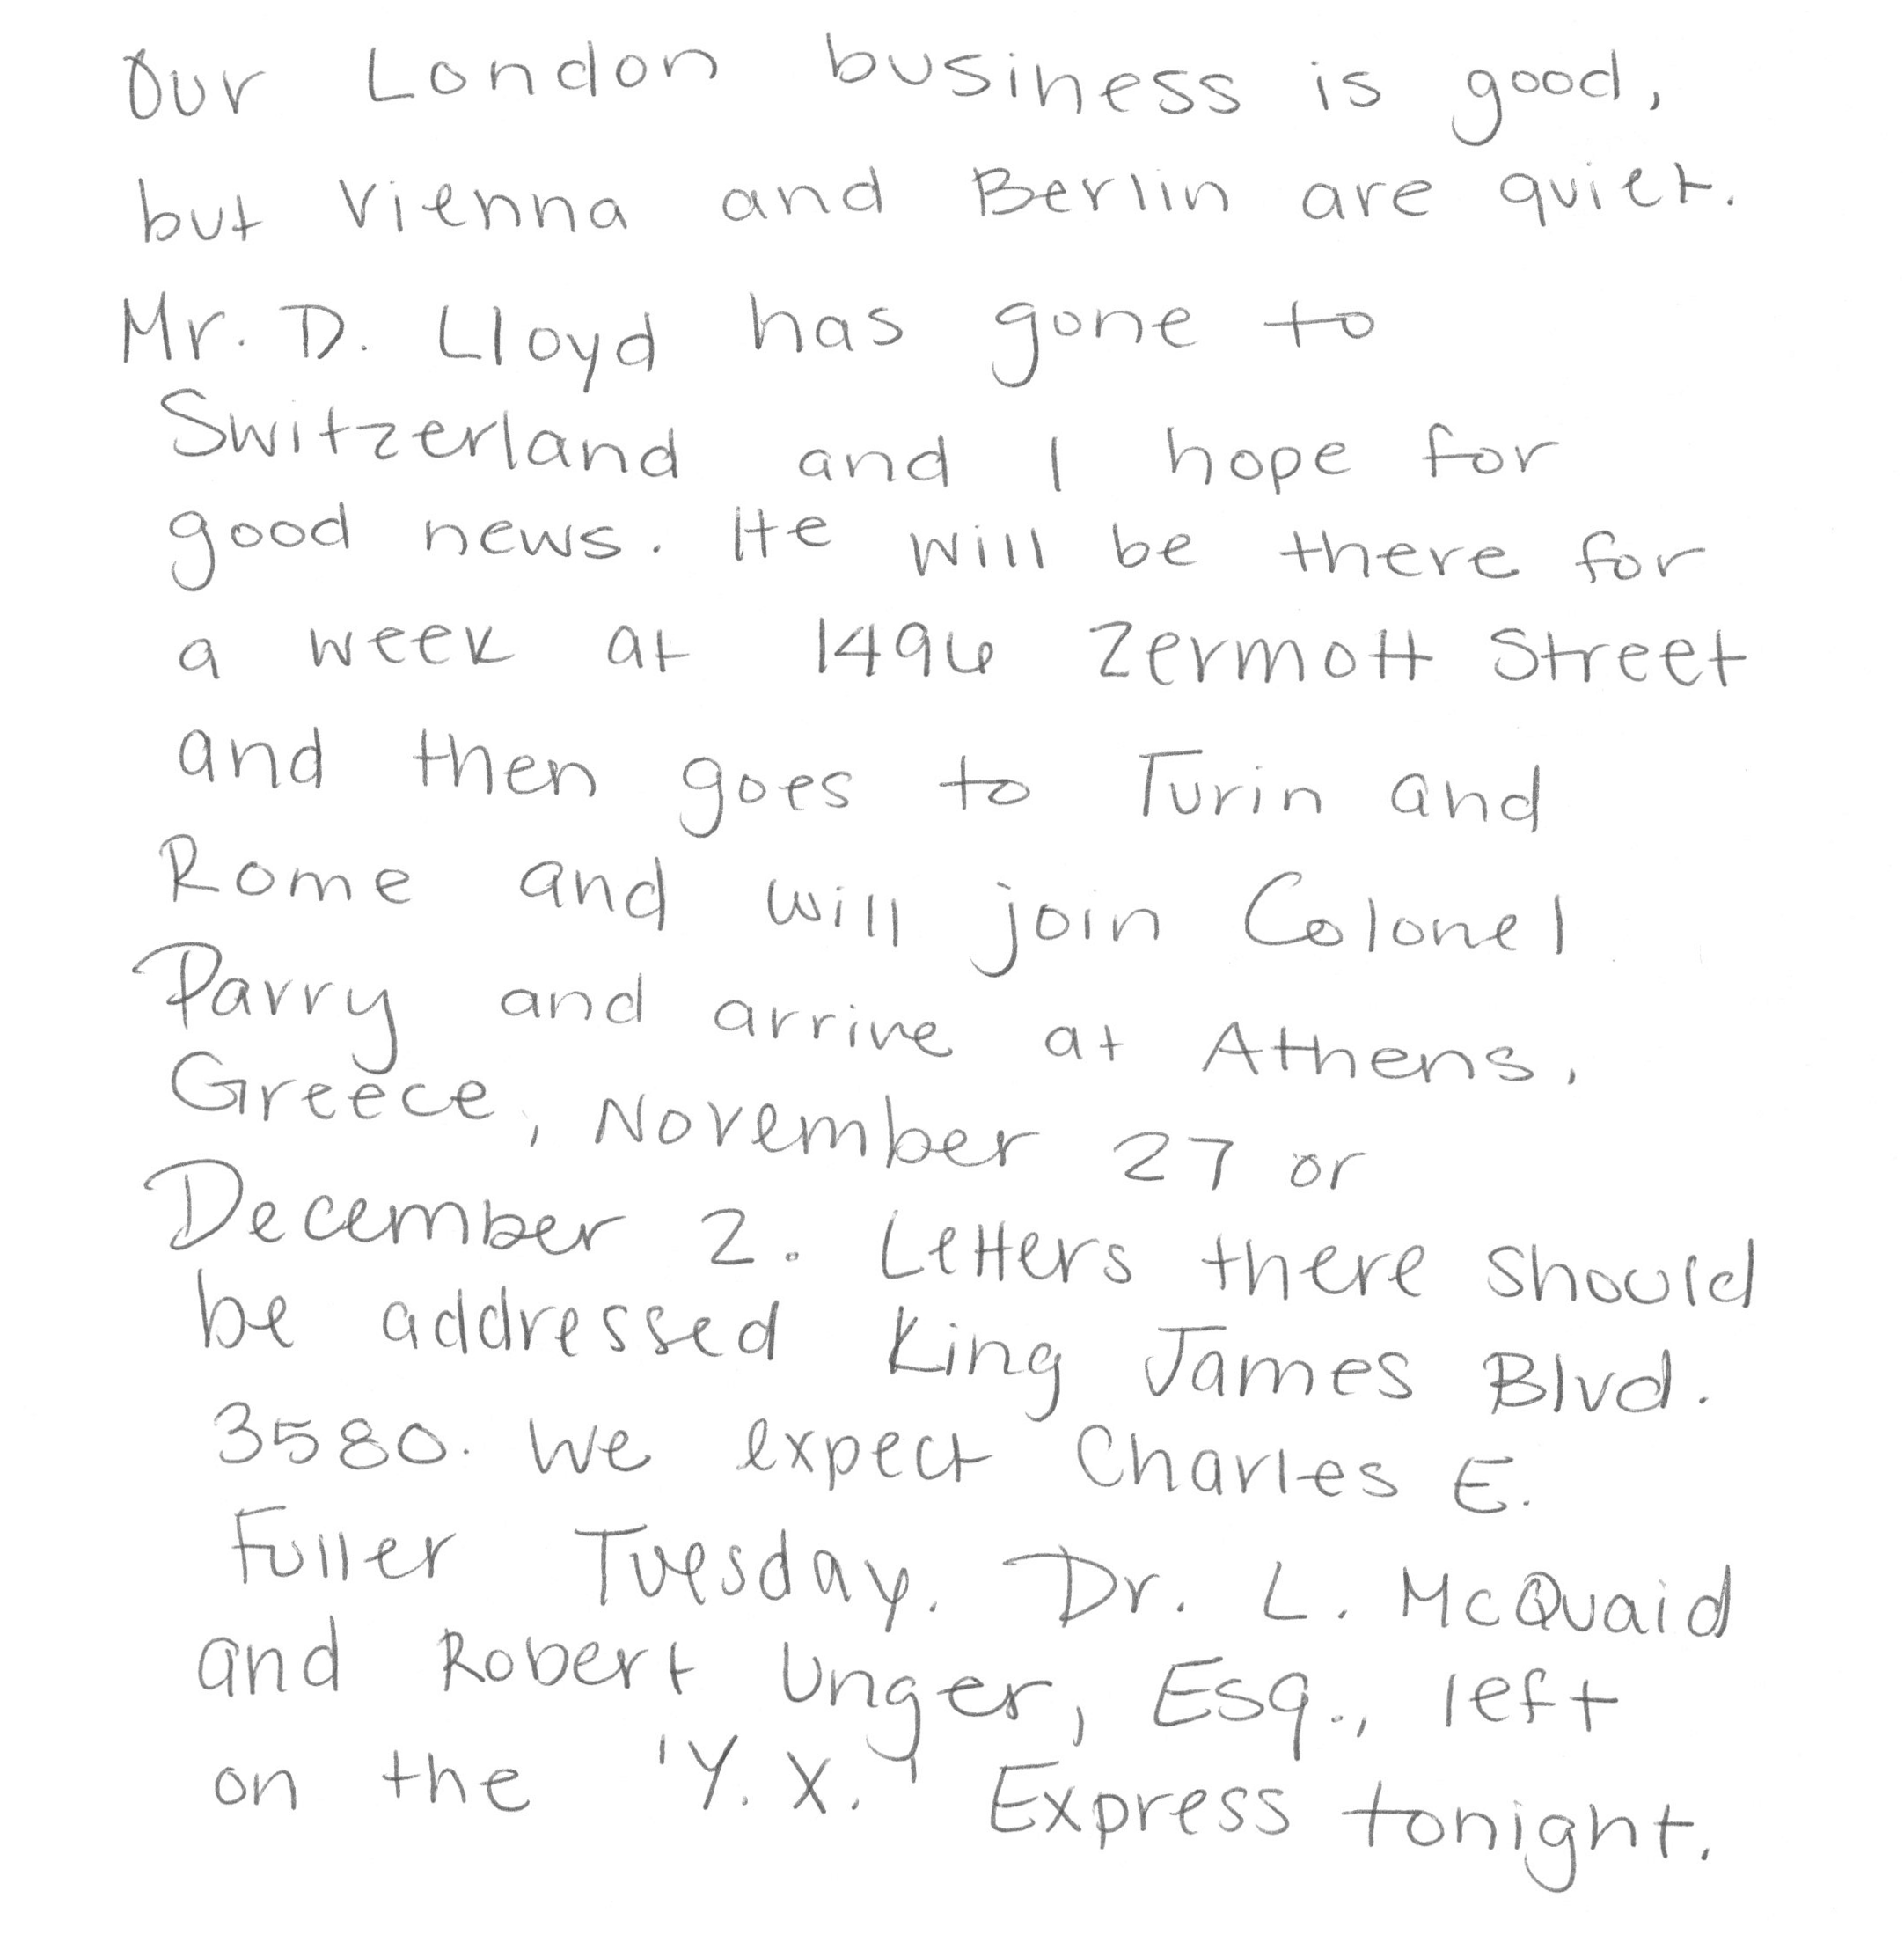 Our London business is good,
but Vienna and Berlin are quiet.
Mr. D. Lloyd has gone to
Switzerland and I hope for
good news. He will be there for
a week at 1496 Zermott Street
and then goes to Turin and
Rome and will join Colonel
Parry and arrive at Athens,
Greece, November 27 or
December 2. Letters there should
be addressed King James Blvd.
3580. We expect Charles E.
Fuller Tuesday. Dr. L. McQuaid
and Robert Unger, Esq., left
on the 'Y. X.' Express tonight.